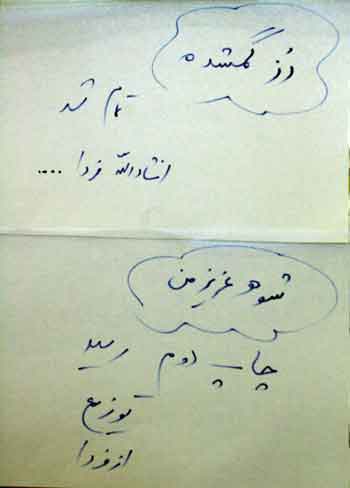 رُز گمشده
تمام شد
انشاءالله فردا ....
شوهر عزیز من
چاپ دوم رسید
توزیع
از فردا